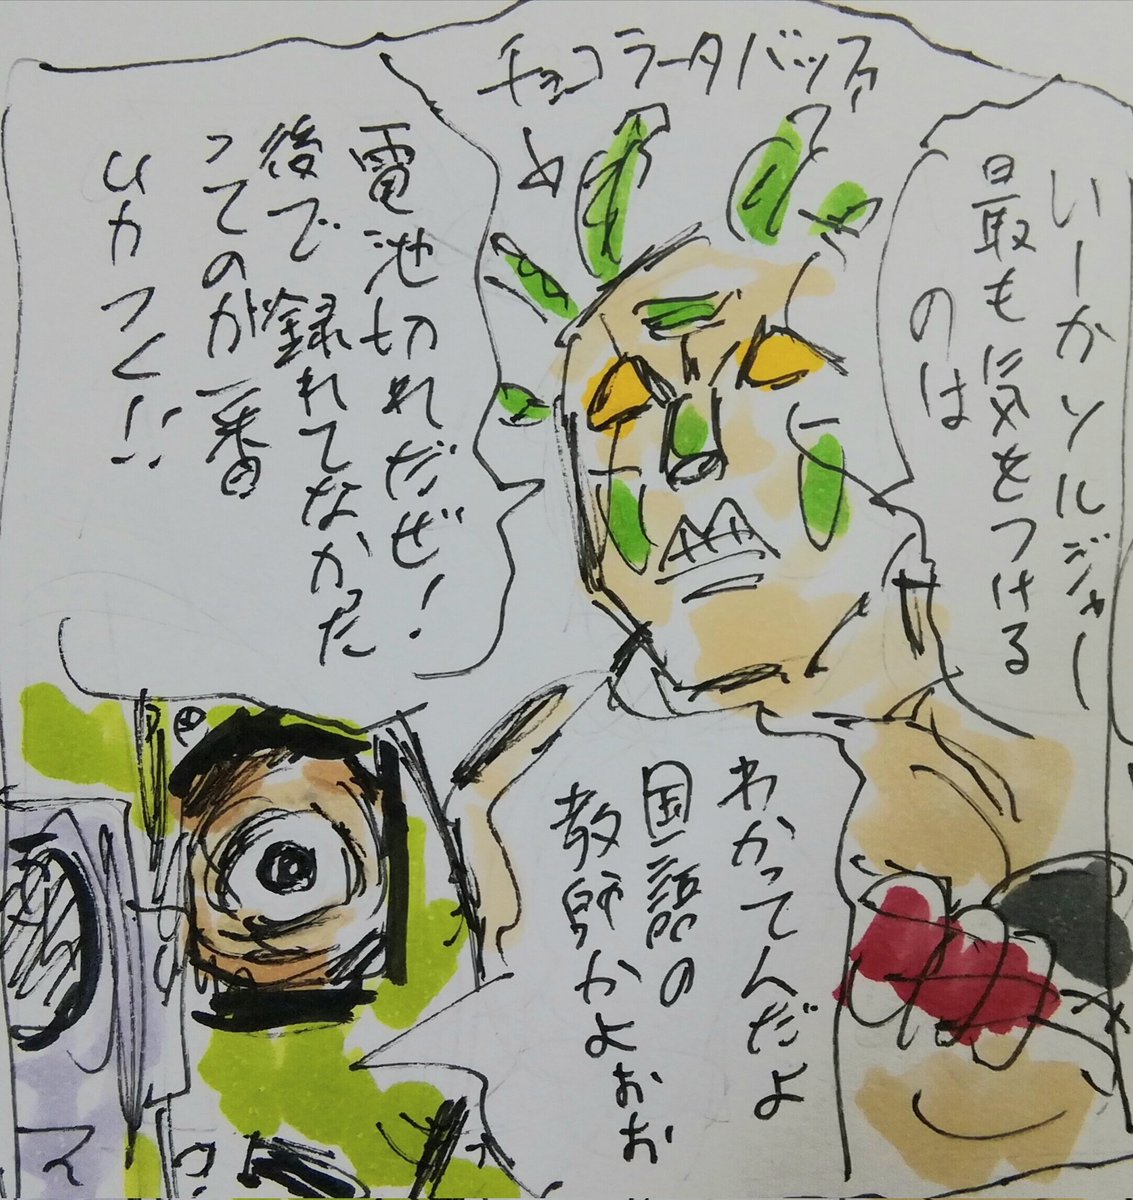 チョコラータバッファ
いーかソルジャー
最も気をつける
のは
電池切れだぜ!
後で録れてなかった
ってのが一番
ムカつく!!
わかってんだよ
国語の
教師かよおお